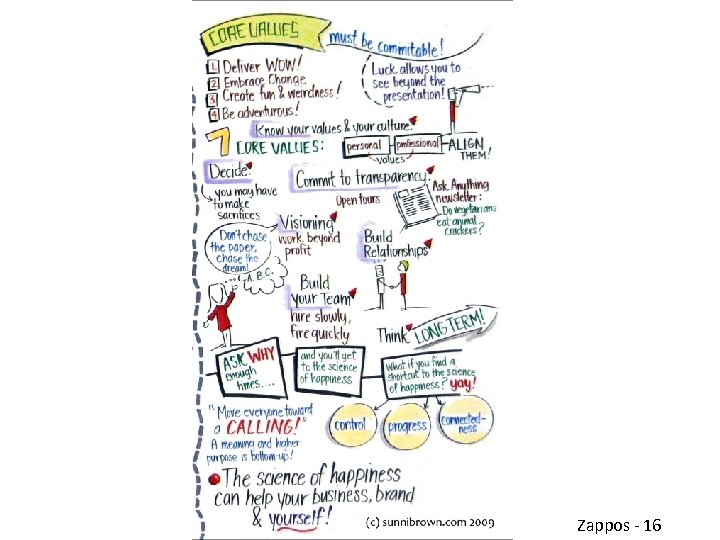 CORE VALUES
must be commitable!
1 Deliver WOW!
2 Embrace Change
3 Create fun & weirdness!
4 Be adventurous!
Luck allows you to
see beyond the
presentation!
Know your values & your culture.
7 CORE VALUES:
personal
professional
values
ALIGN
THEM!
Decide.
you may have
to make
sacrifices
Commit to transparency.
Open tours
Ask Anything
newsletter:
Do vegetarians
eat animal
crackers?
Don't chase
the paper,
chase the
dream!
A.B.C.
Visioning
work beyond
profit
Build
Relationships
Build
your Team
hire slowly,
fire quickly
Think LONG TERM!
ASK WHY
enough
times....
and you'll get
to the science
of happiness
What if you find a
shortcut to the science
of happiness? yay!
"Move everyone toward
a CALLING!"
A meaning and higher
purpose is bottom-up!
control
progress
connected-
ness
The science of happiness
can help your business, brand
& yourself!
(c) sunnibrown.com 2009
Zappos - 16